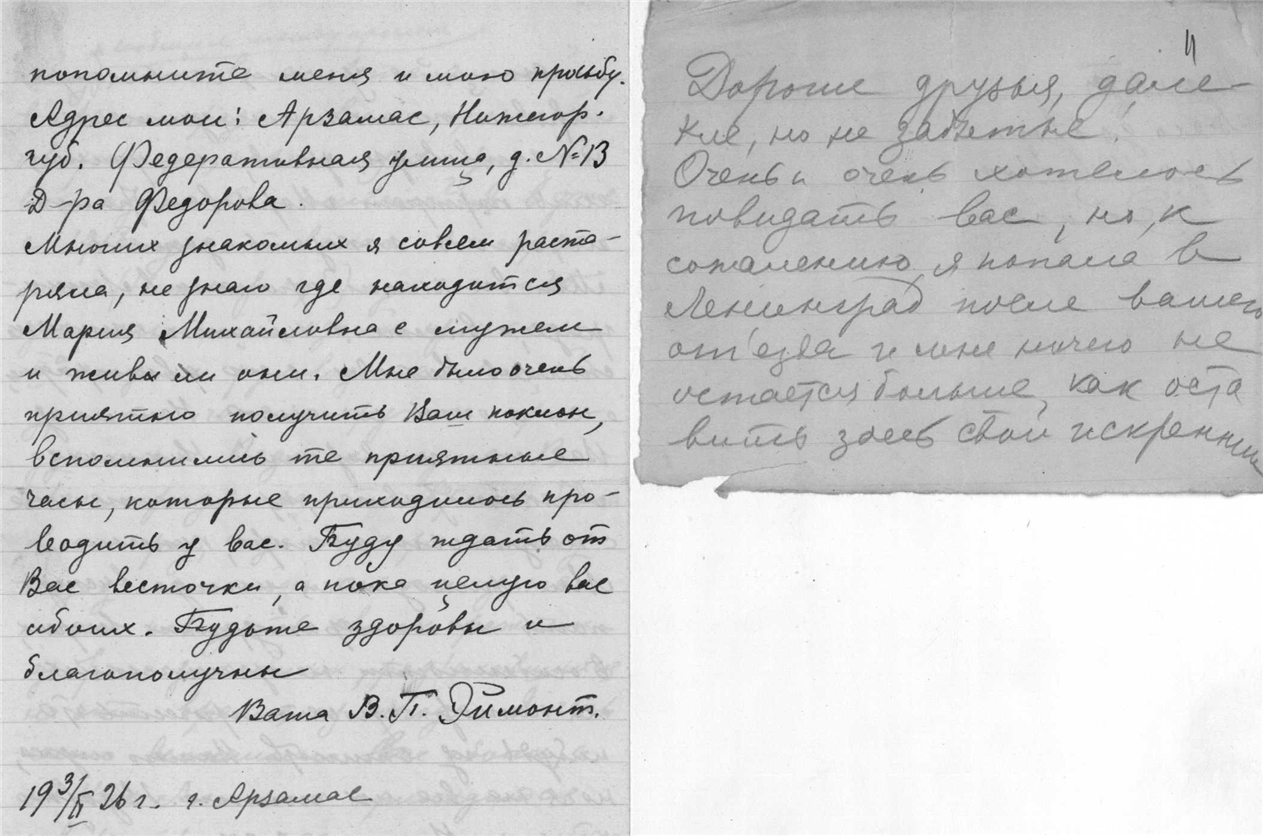 попомните меня и мою просьбу.
Адрес мой: Арзамас, Нижегор.
губ. Федеративная улица, д. №13
Д-ра Федорова.
Многих знакомых я совсем расте-
ряла, не знаю где находится
Мария Михайловна с мужем
и живы ли они. Мне было очень
приятно получить Ваш поклон,
вспомнились те приятные
часы, которые приходилось про-
водить у вас. Буду ждать от
Вас весточки, а пока целую вас
обоих. Будьте здоровы и
благополучны
Ваша В. П. Эймонт.
19 3/II 26 г. г. Арзамас
11
Дорогие друзья, дале-
кие, но не забытые!
Очень и очень хотелось
повидать вас, но, к
сожалению, я попала в
Ленинград после вашего
от'езда и мне ничего не
остается больше, как оста
вить здесь свой искренний